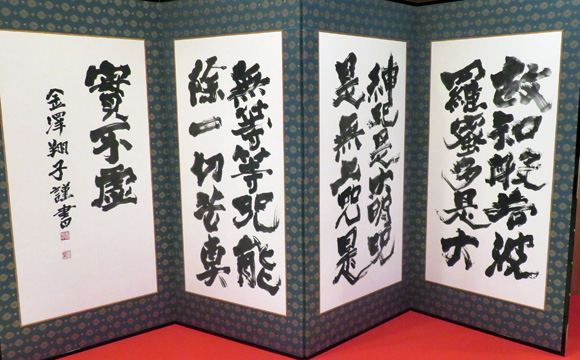 故知般若波
羅蜜多是大
神呪是大明呪
是無上呪是
無等等呪能
除一切苦真
實不虚
金澤翔子謹書